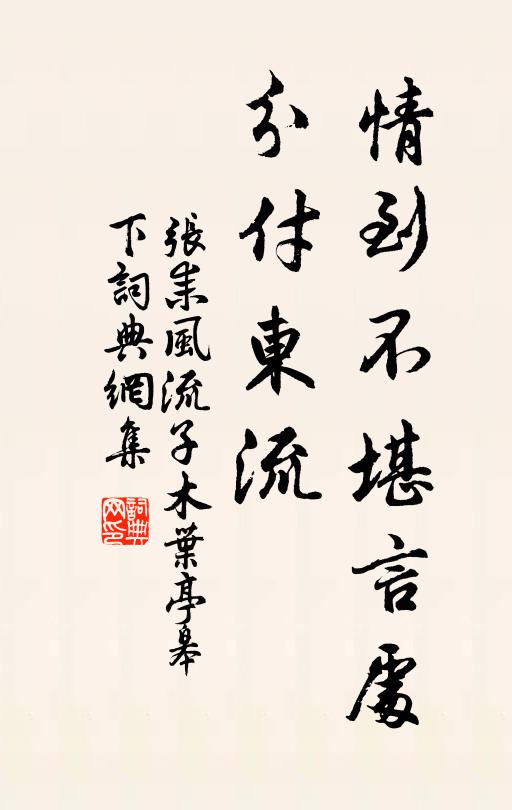 情到不堪言處
分付東流
張耒風流子木葉亭皋
下詞典網集
詞典網印